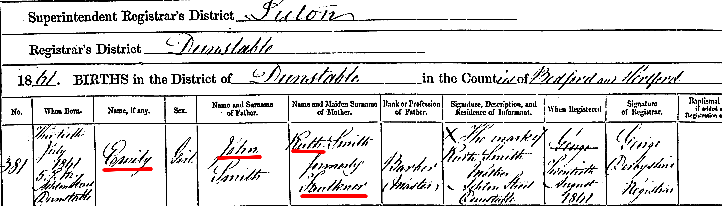 Superintendent Registrar's District Luton
Registrar's District Dunstable
1861. BIRTHS in the District of Dunstable in the Counties of Bedford and Hertford
No. When Born. Name, if any. Sex. Name and Surname of Father. Name and Maiden Surname of Mother. Rank or Profession of Father. Signature, Description, and Residence of Informant. When Registered. Signature of Registrar. Baptismal
381 Thirtieth July 1861 Dunstable Emily Girl John Smith Ruth Smith formerly Faulkner Master X The mark of Ruth Smith Mother Dunstable Twentieth August 1861 George Derbyshire Registrar